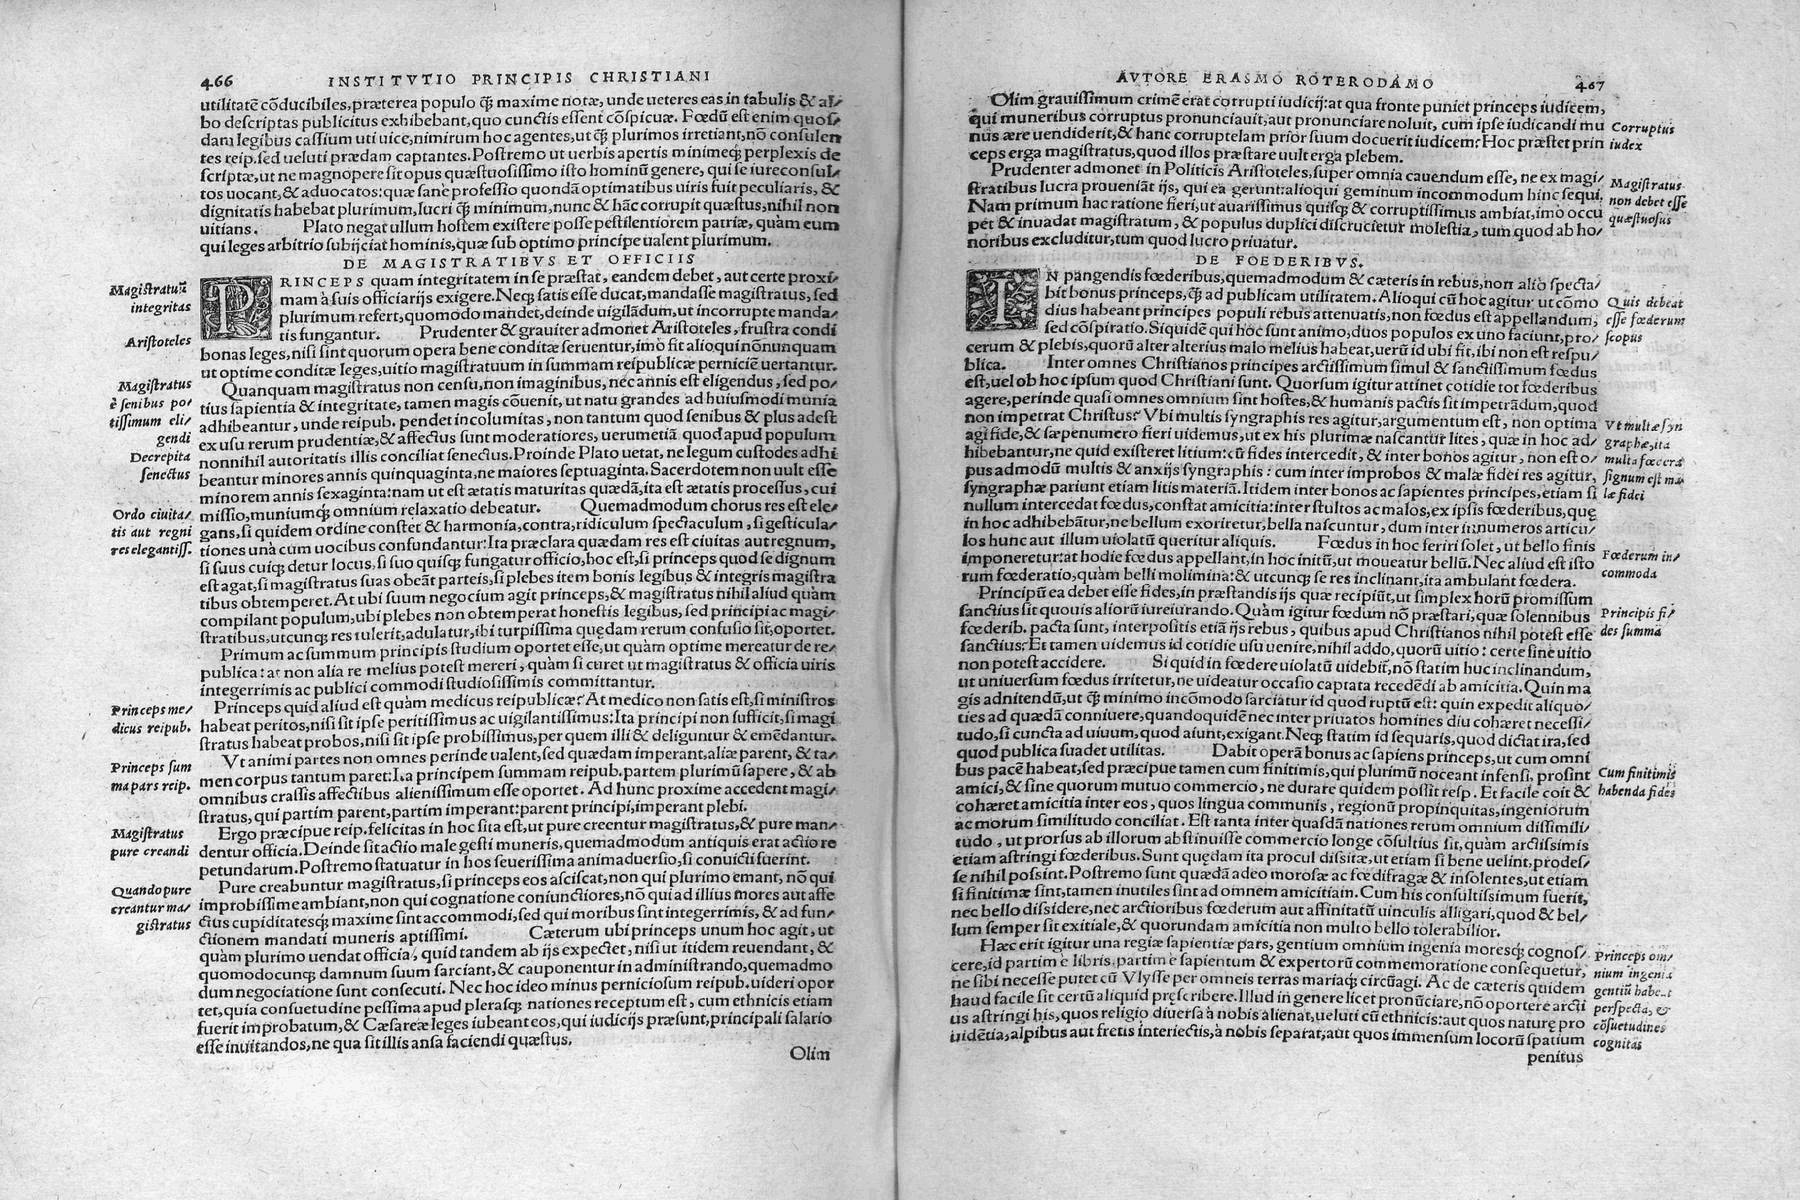 466 INSTITVTIO PRINCIPIS CHRISTIANI
utilitatē cōducibiles, præterea populo q̄ƺ maxime notæ, unde ueteres eas in tabulis & al/
bo descriptas publicitus exhibebant, quo cunctis essent cōspicuæ. Fœdū est enim quos/
dam legibus cassium uti uice, nimirum hoc agentes, ut q̄ƺ plurimos irretiant, nō consulen
tes reip. sed ueluti prædam captantes. Postremo ut uerbis apertis minimeq; perplexis de
scriptæ, ut ne magnopere sit opus quæstuosissimo isto hominū genere, qui se iureconsul/
tos uocant, & aduocatos: quæ sane professio quondā optimatibus uiris fuit peculiaris, &
dignitatis habebat plurimum, lucri q̄ƺ minimum, nunc & hāc corrupit quæstus, nihil non
uitians. Plato negat ullum hostem existere posse pestilentiorem patriæ, quàm eum
qui leges arbitrio subijciat hominis, quæ sub optimo principe ualent plurimum.
DE MAGISTRATIBVS ET OFFICIIS
PRINCEPS quam integritatem in se præstat, eandem debet, aut certe proxi/
mam à suis officiarijs exigere. Neq; satis esse ducat, mandasse magistratus, sed
plurimum refert, quomodo mandet, deinde uigilādum, ut incorrupte manda/
tis fungantur. Prudenter & grauiter admonet Aristoteles, frustra condi
bonas leges, nisi sint quorum opera bene conditæ seruentur, imò fit alioqui nōnunquam
ut optime conditæ leges, uitio magistratuum in summam reipublicæ perniciē uertantur.
Quanquam magistratus non censu, non imaginibus, nec annis est eligendus, sed po/
tius sapientia & integritate, tamen magis cōuenit, ut natu grandes ad huiusmodi munia
adhibeantur, unde reipub. pendet incolumitas, non tantum quod senibus & plus adest
ex usu rerum prudentiæ, & affectus sunt moderatiores, uerumetiā quod apud populum
nonnihil autoritatis illis conciliat senectus. Proinde Plato uetat, ne legum custodes adhi
beantur minores annis quinquaginta, ne maiores septuaginta. Sacerdotem non uult esse
minorem annis sexaginta: nam ut est ætatis maturitas quædā, ita est ætatis processus, cui
missio, muniumq; omnium relaxatio debeatur. Quemadmodum chorus res est ele/
gans, si quidem ordine constet & harmonia, contra, ridiculum spectaculum, si gesticula/
tiones unà cum uocibus confundantur: Ita præclara quædam res est ciuitas aut regnum,
si suus cuiq; detur locus, si suo quisq; fungatur officio, hoc est, si princeps quod se dignum
est agat, si magistratus suas obeāt parteis, si plebes item bonis legibus & integris magistra
tibus obtemperet. At ubi suum negocium agit princeps, & magistratus nihil aliud quàm
compilant populum, ubi plebes non obtemperat honestis legibus, sed principi ac magi/
stratibus, utcunq; res tulerit, adulatur, ibi turpissima quędam rerum confusio sit, oportet.
Primum ac summum principis studium oportet esse, ut quàm optime mereatur de re/
publica: at non alia re melius potest mereri, quàm si curet ut magistratus & officia uiris
integerrimis ac publici commodi studiosissimis committantur.
Princeps quid aliud est quàm medicus reipublicæ? At medico non satis est, si ministros
habeat peritos, nisi sit ipse peritissimus ac uigilantissimus: Ita principi non sufficit, si magi
stratus habeat probos, nisi sit ipse probissimus, per quem illi & deliguntur & emēdantur.
Vt animi partes non omnes perinde ualent, sed quædam imperant, aliæ parent, & ta/
men corpus tantum paret: Ita principem summam reipub. partem plurimū sapere, & ab
omnibus crassis affectibus alienissimum esse oportet. Ad hunc proxime accedent magi/
stratus, qui partim parent, partim imperant: parent principi, imperant plebi.
Ergo præcipue reip. felicitas in hoc sita est, ut pure creentur magistratus, & pure man/
dentur officia. Deinde sit actio male gesti muneris, quemadmodum antiquis erat actio re
petundarum. Postremo statuatur in hos seuerissima animaduersio, si conuicti fuerint.
Pure creabuntur magistratus, si princeps eos asciscat, non qui plurimo emant, nō qui
improbissime ambiant, non qui cognatione coniunctiores, nō qui ad illius mores aut affe
ctus cupiditatesq; maxime sint accommodi, sed qui moribus sint integerrimis, & ad fun/
ctionem mandati muneris aptissimi. Cæterum ubi princeps unum hoc agit, ut
quàm plurimo uendat officia, quid tandem ab ijs expectet, nisi ut itidem reuendant, &
quomodocunq; damnum suum sarciant, & cauponentur in administrando, quemadmo
dum negociatione sunt consecuti. Nec hoc ideo minus perniciosum reipub. uideri opor
tet, quia consuetudine pessima apud plerasq; nationes receptum est, cum ethnicis etiam
fuerit improbatum, & Cæsareæ leges iubeant eos, qui iudicijs præsunt, principali salario
esse inuitandos, ne qua sit illis ansa faciendi quæstus.
Olim
Magistratuū
integritas
Aristoteles
Magistratus
è senibus po/
tissimum eli/
gendi
Decrepita
senectus
Ordo ciuita/
tis aut regni
res elegantiss.
Princeps me/
dicus reipub.
Princeps sum
ma pars reip.
Magistratus
pure creandi
Quando pure
creantur ma/
gistratus
AVTORE ERASMO ROTERODAMO 467
Olim grauissimum crimē erat corrupti iudicij: at qua fronte puniet princeps iudicem,
qui muneribus corruptus pronunciauit, aut pronunciare noluit, cum ipse iudicandi mu
nus ære uendiderit, & hanc corruptelam prior suum docuerit iudicem? Hoc præstet prin
ceps erga magistratus, quod illos præstare uult erga plebem.
Prudenter admonet in Politicis Aristoteles, super omnia cauendum esse, ne ex magi/
stratibus lucra proueniāt ijs, qui ea gerunt: alioqui geminum incommodum hinc sequi.
Nam primum hac ratione fieri, ut auarissimus quisq; & corruptissimus ambiat, imo occu
pet & inuadat magistratum, & populus duplici discrucietur molestia, tum quod ab ho/
noribus excluditur, tum quod lucro priuatur.
DE FOEDERIBVS.
IN pangendis fœderibus, quemadmodum & cæteris in rebus, non alio specta/
bit bonus princeps, q̄ƺ ad publicam utilitatem. Alioqui cū hoc agitur ut cōmo
dius habeant principes populi rebus attenuatis, non fœdus est appellandum,
sed cōspiratio. Siquidē qui hoc sunt animo, duos populos ex uno faciunt, pro/
cerum & plebis, quorū alter alterius malo melius habeat, uerū id ubi fit, ibi non est respu/
blica. Inter omnes Christianos principes arctissimum simul & sanctissimum fœdus
est, uel ob hoc ipsum quod Christiani sunt. Quorsum igitur attinet cotidie tot fœderibus
agere, perinde quasi omnes omnium sint hostes, & humanis pactis sit impetrādum, quod
non impetrat Christus? Vbi multis syngraphis res agitur, argumentum est, non optima
agi fide, & sæpenumero fieri uidemus, ut ex his plurimæ nascantur lites, quæ in hoc ad/
hibebantur, ne quid existeret litium: cū fides intercedit, & inter bonos agitur, non est o/
pus admodū multis & anxijs syngraphis: cum inter improbos & malæ fidei res agitur,
syngraphæ pariunt etiam litis materiā. Itidem inter bonos ac sapientes principes, etiam si
nullum intercedat fœdus, constat amicitia: inter stultos ac malos, ex ipsis fœderibus, quę
in hoc adhibebātur, ne bellum exoriretur, bella nascuntur, dum inter innumeros articu/
los hunc aut illum uiolatū queritur aliquis. Fœdus in hoc feriri solet, ut bello finis
imponeretur: at hodie fœdus appellant, in hoc initū, ut moueatur bellū. Nec aliud est isto
rum fœderatio, quàm belli molimina: & utcunq; se res inclinant, ita ambulant fœdera.
Principū ea debet esse fides, in præstandis ijs quæ recipiūt, ut simplex horū promissum
sanctius sit quouis aliorū iureiurando. Quàm igitur fœdum nō præstari, quæ solennibus
fœderib. pacta sunt, interpositis etiā ijs rebus, quibus apud Christianos nihil potest esse
sanctius? Et tamen uidemus id cotidie usu uenire, nihil addo, quorū uitio: certe sine uitio
non potest accidere. Si quid in fœdere uiolatū uidebit̄, nō statim huc inclinandum,
ut uniuersum fœdus irritetur, ne uideatur occasio captata recedēdi ab amicitia. Quin ma
gis adnitendū, ut q̄ƺ minimo incōmodo sarciatur id quod ruptū est: quin expedit aliquo/
ties ad quædā conniuere, quandoquidē nec inter priuatos homines diu cohæret necessi/
tudo, si cuncta ad uiuum, quod aiunt, exigant. Neq; statim id sequaris, quod dictat ira, sed
quod publica suadet utilitas. Dabit operā bonus ac sapiens princeps, ut cum omni
bus pacē habeat, sed præcipue tamen cum finitimis, qui plurimū noceant infensi, prosint
amici, & sine quorum mutuo commercio, ne durare quidem possit resp. Et facile coit &
cohæret amicitia inter eos, quos lingua communis, regionū propinquitas, ingeniorum
ac morum similitudo conciliat. Est tanta inter quasdā nationes rerum omnium dissimili/
tudo, ut prorsus ab illorum abstinuisse commercio longe cōsultius sit, quàm arctissimis
etiam astringi fœderibus. Sunt quędam ita procul dissitæ, ut etiam si bene uelint, prodes/
se nihil possint. Postremo sunt quædā adeo morosæ ac fœdifragæ & insolentes, ut etiam
si finitimæ sint, tamen inutiles sint ad omnem amicitiam. Cum his consultissimum fuerit,
nec bello dissidere, nec arctioribus fœderum aut affinitatū uinculis alligari, quod & bel/
lum semper sit exitiale, & quorundam amicitia non multo bello tolerabilior.
Hæc erit igitur una regiæ sapientiæ pars, gentium omnium ingenia moresq; cognos/
cere, id partim è libris, partim è sapientum & expertorū commemoratione consequetur,
ne sibi necesse putet cū Vlysse per omneis terras mariaq; circūagi. Ac de cæteris quidem
haud facile sit certū aliquid pręscribere. Illud in genere licet pronūciare, nō oportere arcti
us astringi his, quos religio diuersa à nobis alienat, ueluti cū ethnicis: aut quos naturę pro
uidētia, alpibus aut fretis interiectis, à nobis separat, aut quos immensum locorū spatium
penitus
Corruptus
iudex
Magistratus
non debet esse
quæstuosus
Quis debeat
esse fœderum
scopus
Vt multæ syn
graphæ, ita
multa fœdera
signum est ma
læ fidei
Fœderum in/
commoda
Principis fi/
des summa
Cum finitimis
habenda fides
Princeps om/
nium ingenia
gentiū habeat
perspecta, &
cōsuetudines
cognitas